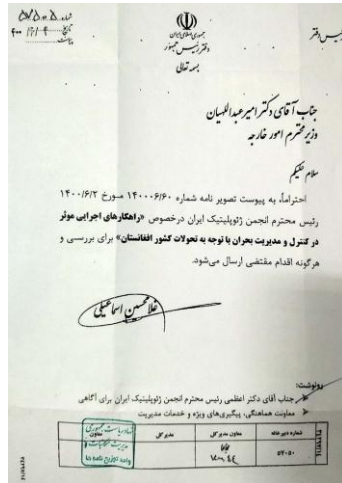 رئیس دفتر
جمهوری اسلامی ایران
دفتر رئیس جمهور
بسمه تعالی
شماره
تاریخ
پیوست
جناب آقای دکتر امیرعبداللهیان
وزیر محترم امور خارجه
سلام علیکم
احتراماً، به پیوست تصویر نامه شماره ۱۴۰۰۰۶/۶۰ مورخ ۱۴۰۰/۶/۲
رئیس محترم انجمن ژئوپلیتیک ایران درخصوص «راهکارهای اجرایی موثر
در کنترل و مدیریت بحران با توجه به تحولات کشور افغانستان» برای بررسی و
هرگونه اقدام مقتضی ارسال می‌شود.
غلامحسین اسماعیلی
رونوشت:
جناب آقای دکتر اعظمی رئیس محترم انجمن ژئوپلیتیک ایران برای آگاهی
معاونت هماهنگی، پیگیری‌های ویژه و خدمات مدیریت
شماره دبیرخانه
معاون مدیر کل
مدیر کل
معاون
۵۷۰۵۰
نهاد ریاست جمهوری